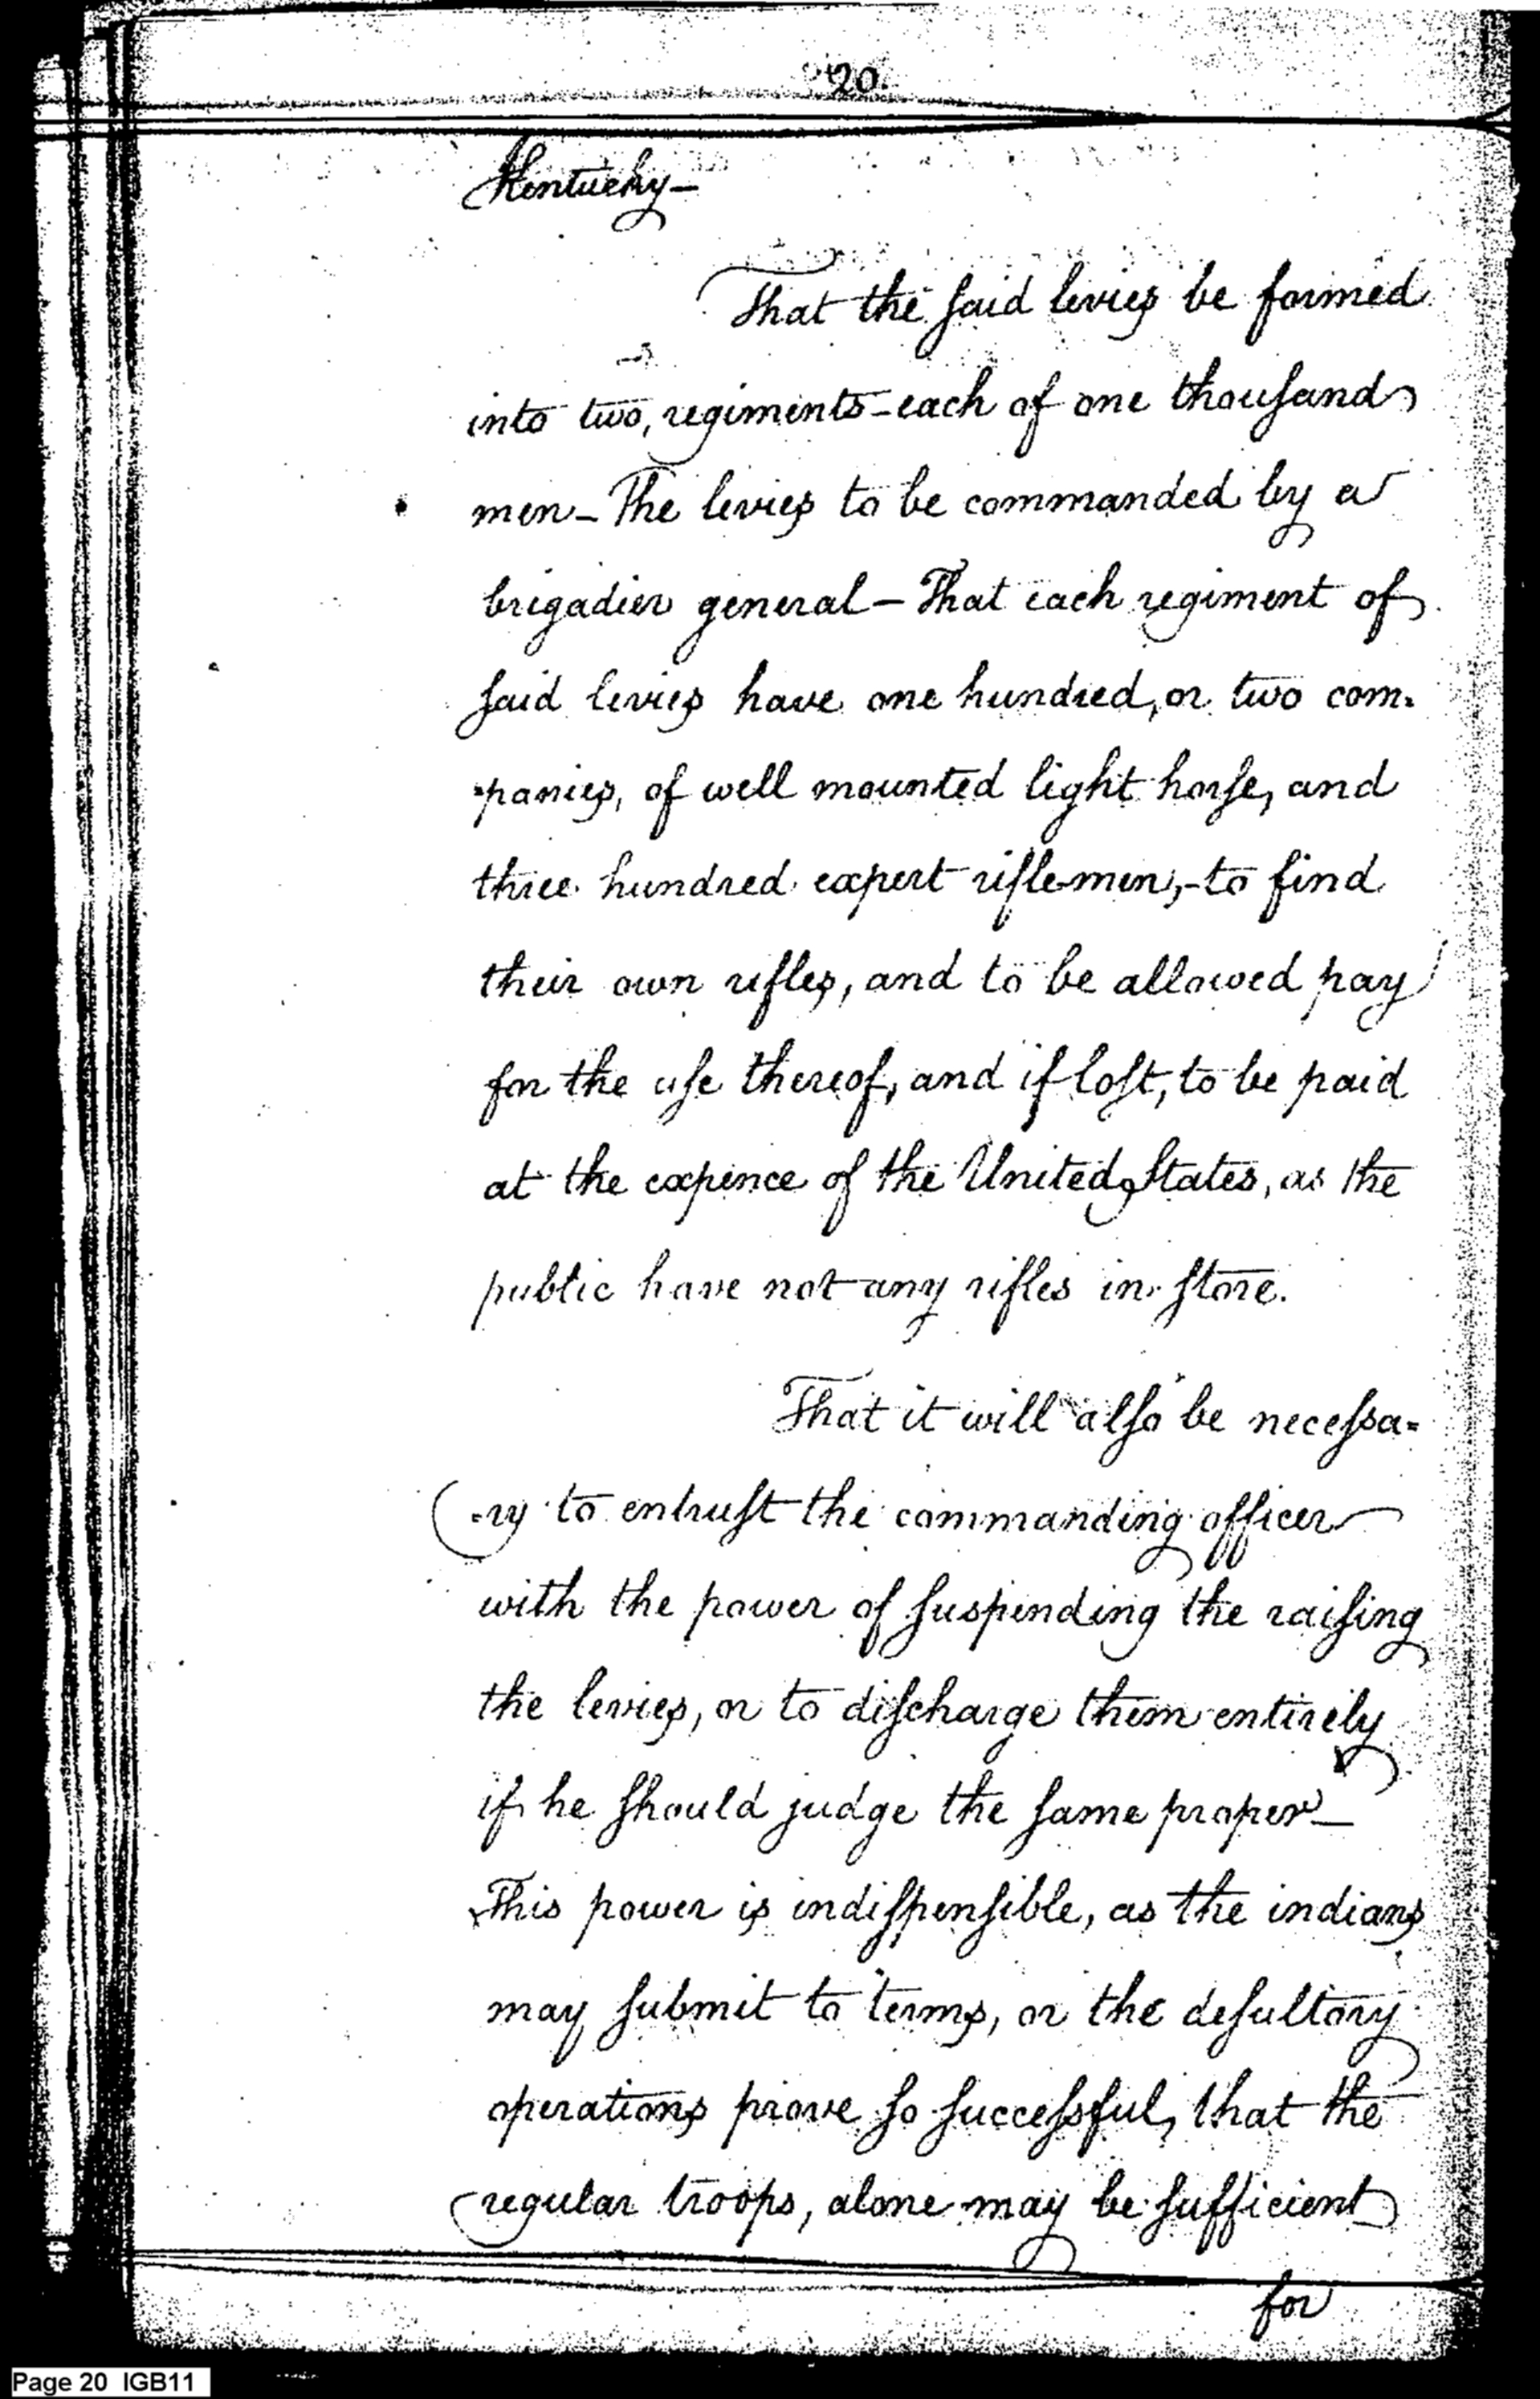 20.
Kentucky—
That the said levies be formed
into two, regiments—each of one thousand
men—The levies to be commanded by a
brigadier general—That each regiment of
said levies have one hundred, or two com-
-panies, of well mounted light horse, and
three hundred expert riflemen,—to find
their own rifles, and to be allowed pay
for the use thereof, and if lost, to be paid
at the expence of the United States, as the
public have not any rifles in store.
That it will also be necessa=
-ry to entrust the commanding officer
with the power of suspending the raising
the levies, or to discharge them entirely
if he should judge the same proper—
This power is indispensible, as the indians
may submit to terms, or the desultory
operations prove so successful, that the
regular troops, alone may be sufficient
for
Page 20 IGB11